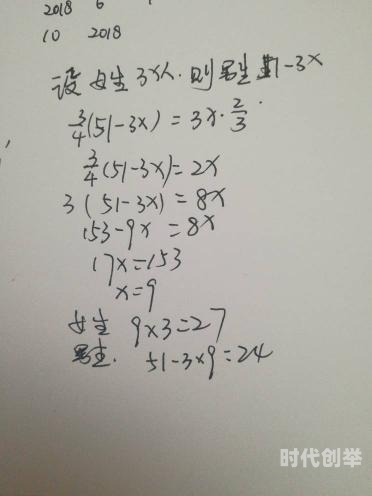 2018 6
10 2018
设女生3x人.则男生51-3x
3/4(51-3x)=3x·2/3
3/4(51-3x)=2x
3(51-3x)=8x
153-9x=8x
17x=153
x=9
女生 9×3=27
男生. 51-3×9=24
时代创举